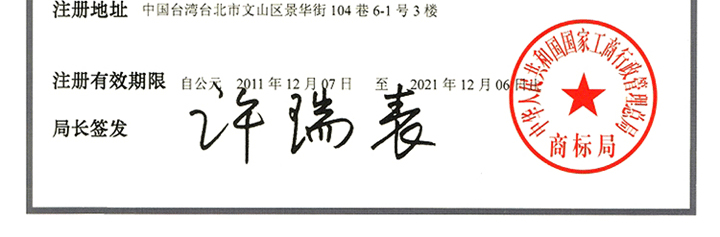 注册地址 中国台湾台北市文山区景华街 104 巷 6-1 号 3 楼
注册有效期限 自公元 2011 年 12 月 07 日 至 2021 年 12 月 06 日止
局长签发 许瑞表
中华人民共和国国家工商行政管理总局
商标局